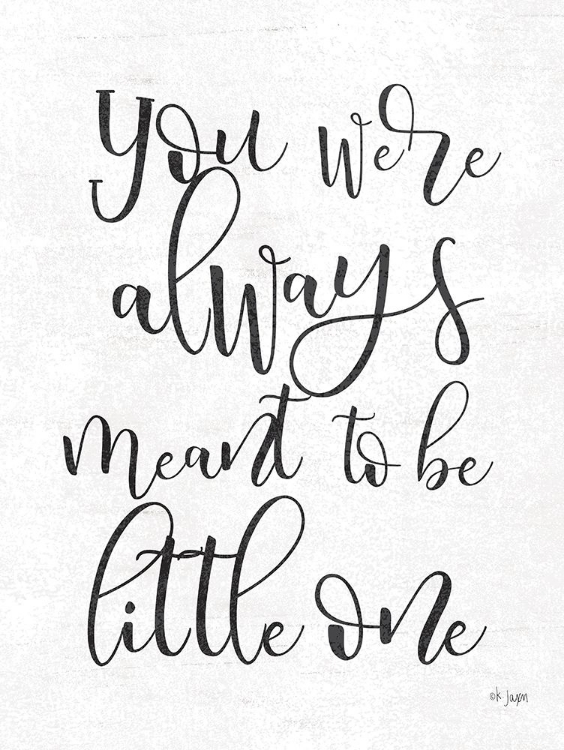 you were
always
meant to be
little one